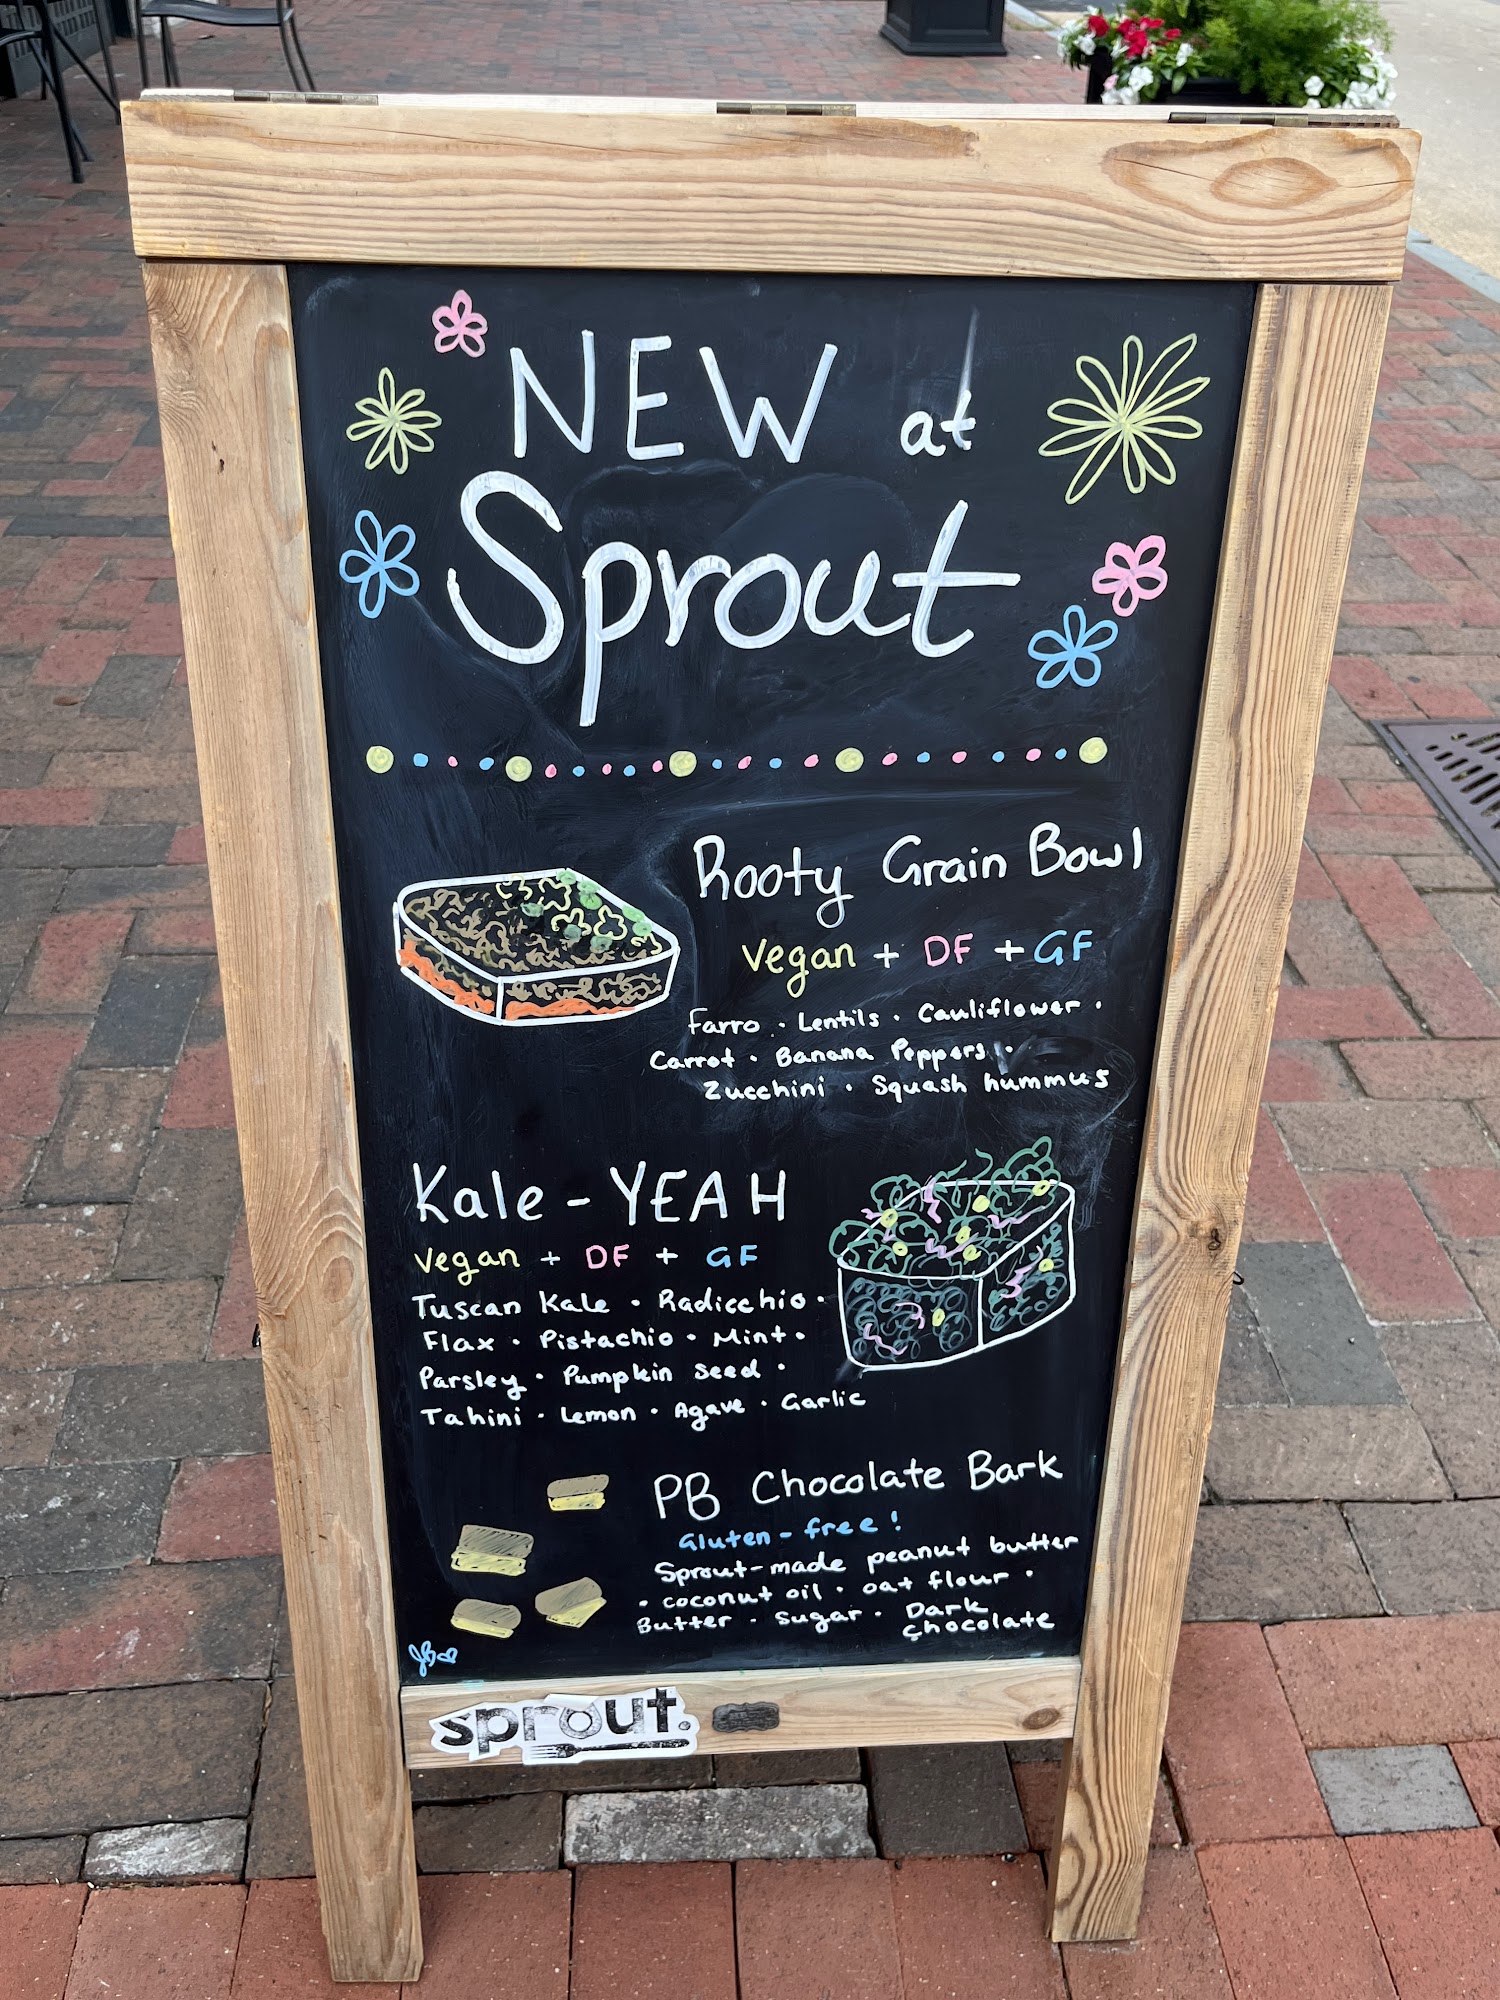 NEW at
Sprout
Rooty Grain Bowl
Vegan + DF + GF
Farro · Lentils · Cauliflower ·
Carrot · Banana Peppers ·
Zucchini · Squash hummus
Kale - YEAH
Vegan + DF + GF
Tuscan Kale · Radicchio ·
Flax · Pistachio · Mint ·
Parsley · Pumpkin Seed ·
Tahini · Lemon · Agave · Garlic
PB Chocolate Bark
Gluten-free!
Sprout-made peanut butter
· coconut oil · oat flour ·
Butter · Sugar · Dark
Chocolate
sprout.